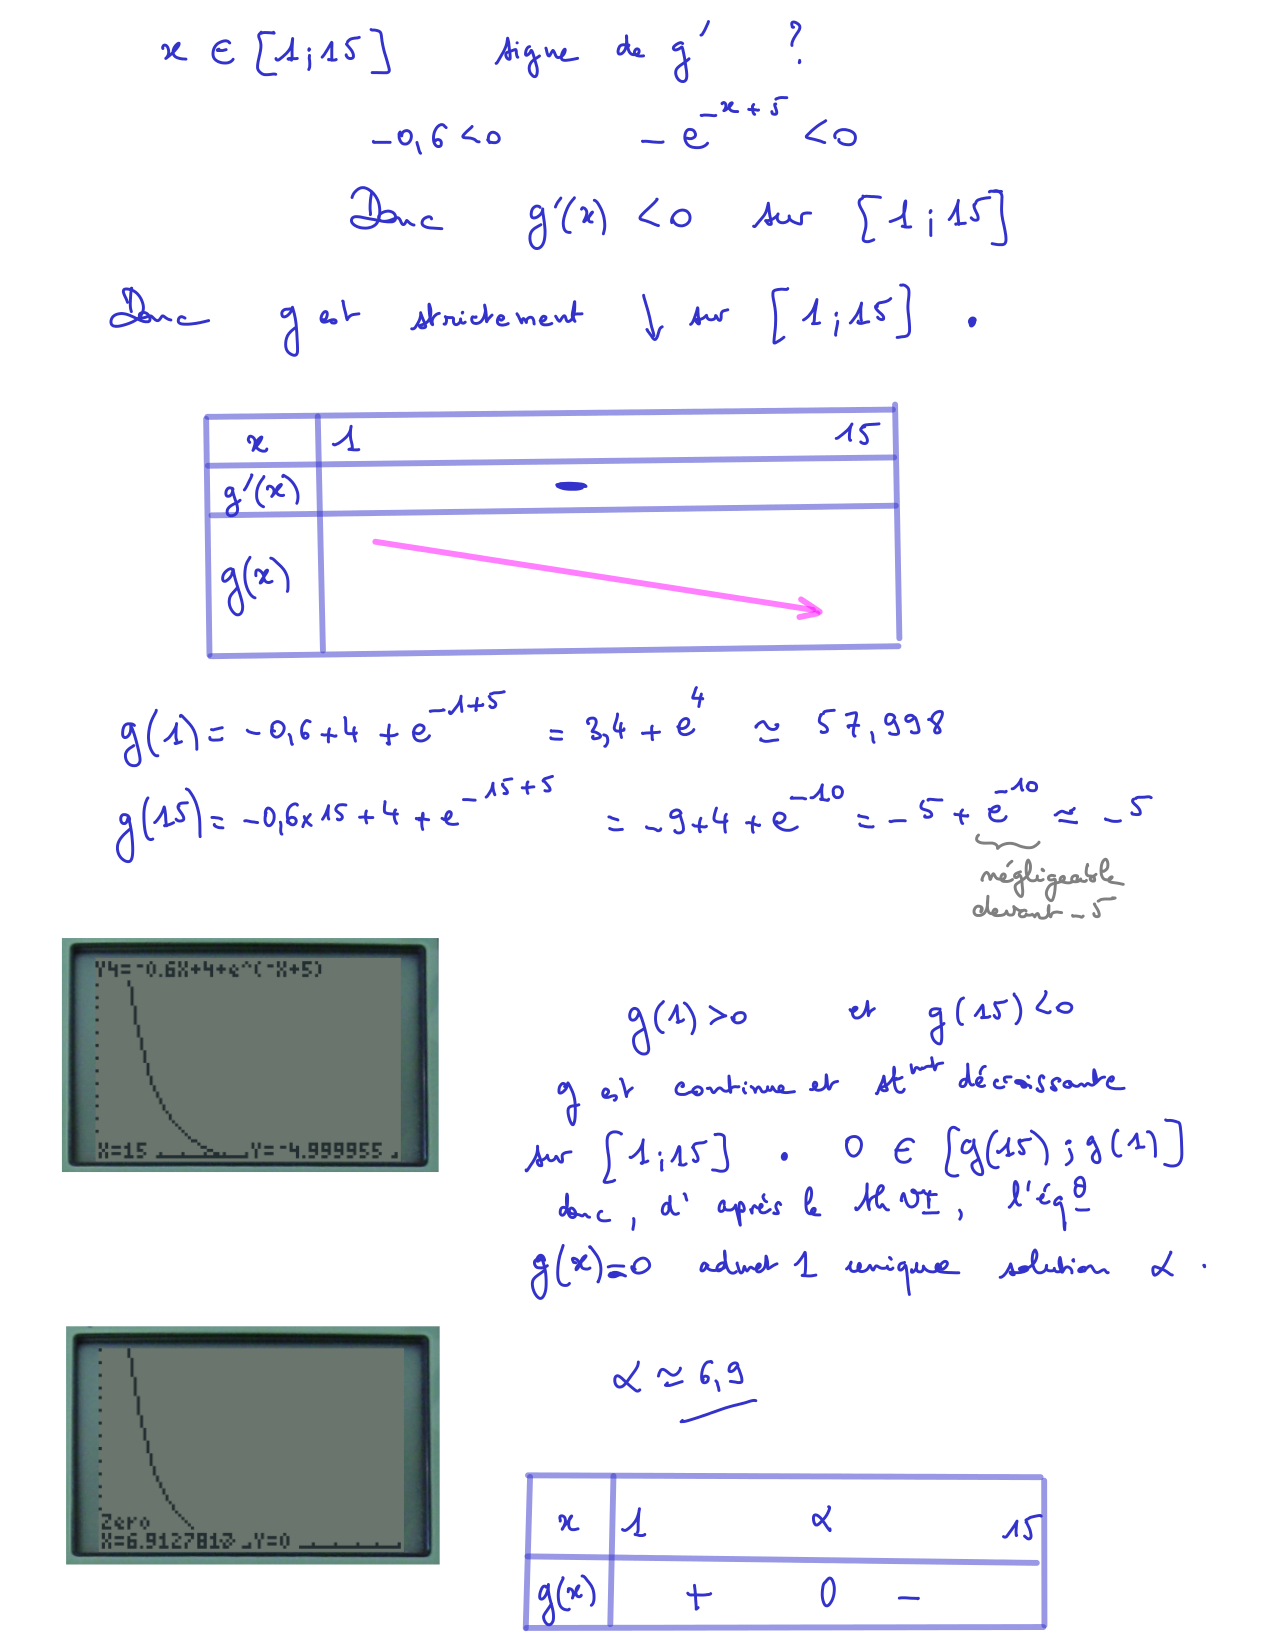 x ∈ [1;15] signe de g' ?
-0,6<0 -e^{-x+5} <0
Donc g'(x) <0 sur [1;15]
Donc g est strictement ↓ sur [1;15] .
x 1 15
g'(x) -
g(x)
g(1) = -0,6+4 + e^{-1+5} = 3,4 + e^4 ≃ 57,998
g(15) = -0,6×15+4 + e^{-15+5} = -9+4 + e^{-10} = -5 + e^{-10} ≃ -5
négligeable
devant -5
Y4=-0.6X+4+e^(-X+5)
X=15 Y=-4.999955
g(1)>0 et g(15)<0
g est continue et st^{mt} décroissante
sur [1;15] . 0 ∈ [g(15);g(1)]
donc, d'après le th VI, l'éq^θ
g(x)=0 admet 1 unique solution α .
α ≃ 6,9
Zero
Y=0
x 1 α 15
g(x) + 0 -